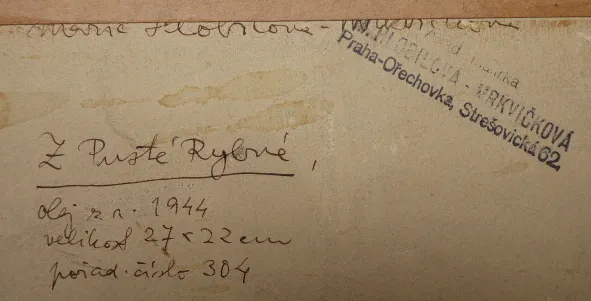 Marie Hlobilová-Mrkvičková
akad. malířka
M. HLOBILOVÁ - MRKVIČKOVÁ
Praha-Ořechovka, Střešovická 62.
Z Pusté Rybné,
olej z r. 1944
velikost 27 × 22 cm
pořad. číslo 304